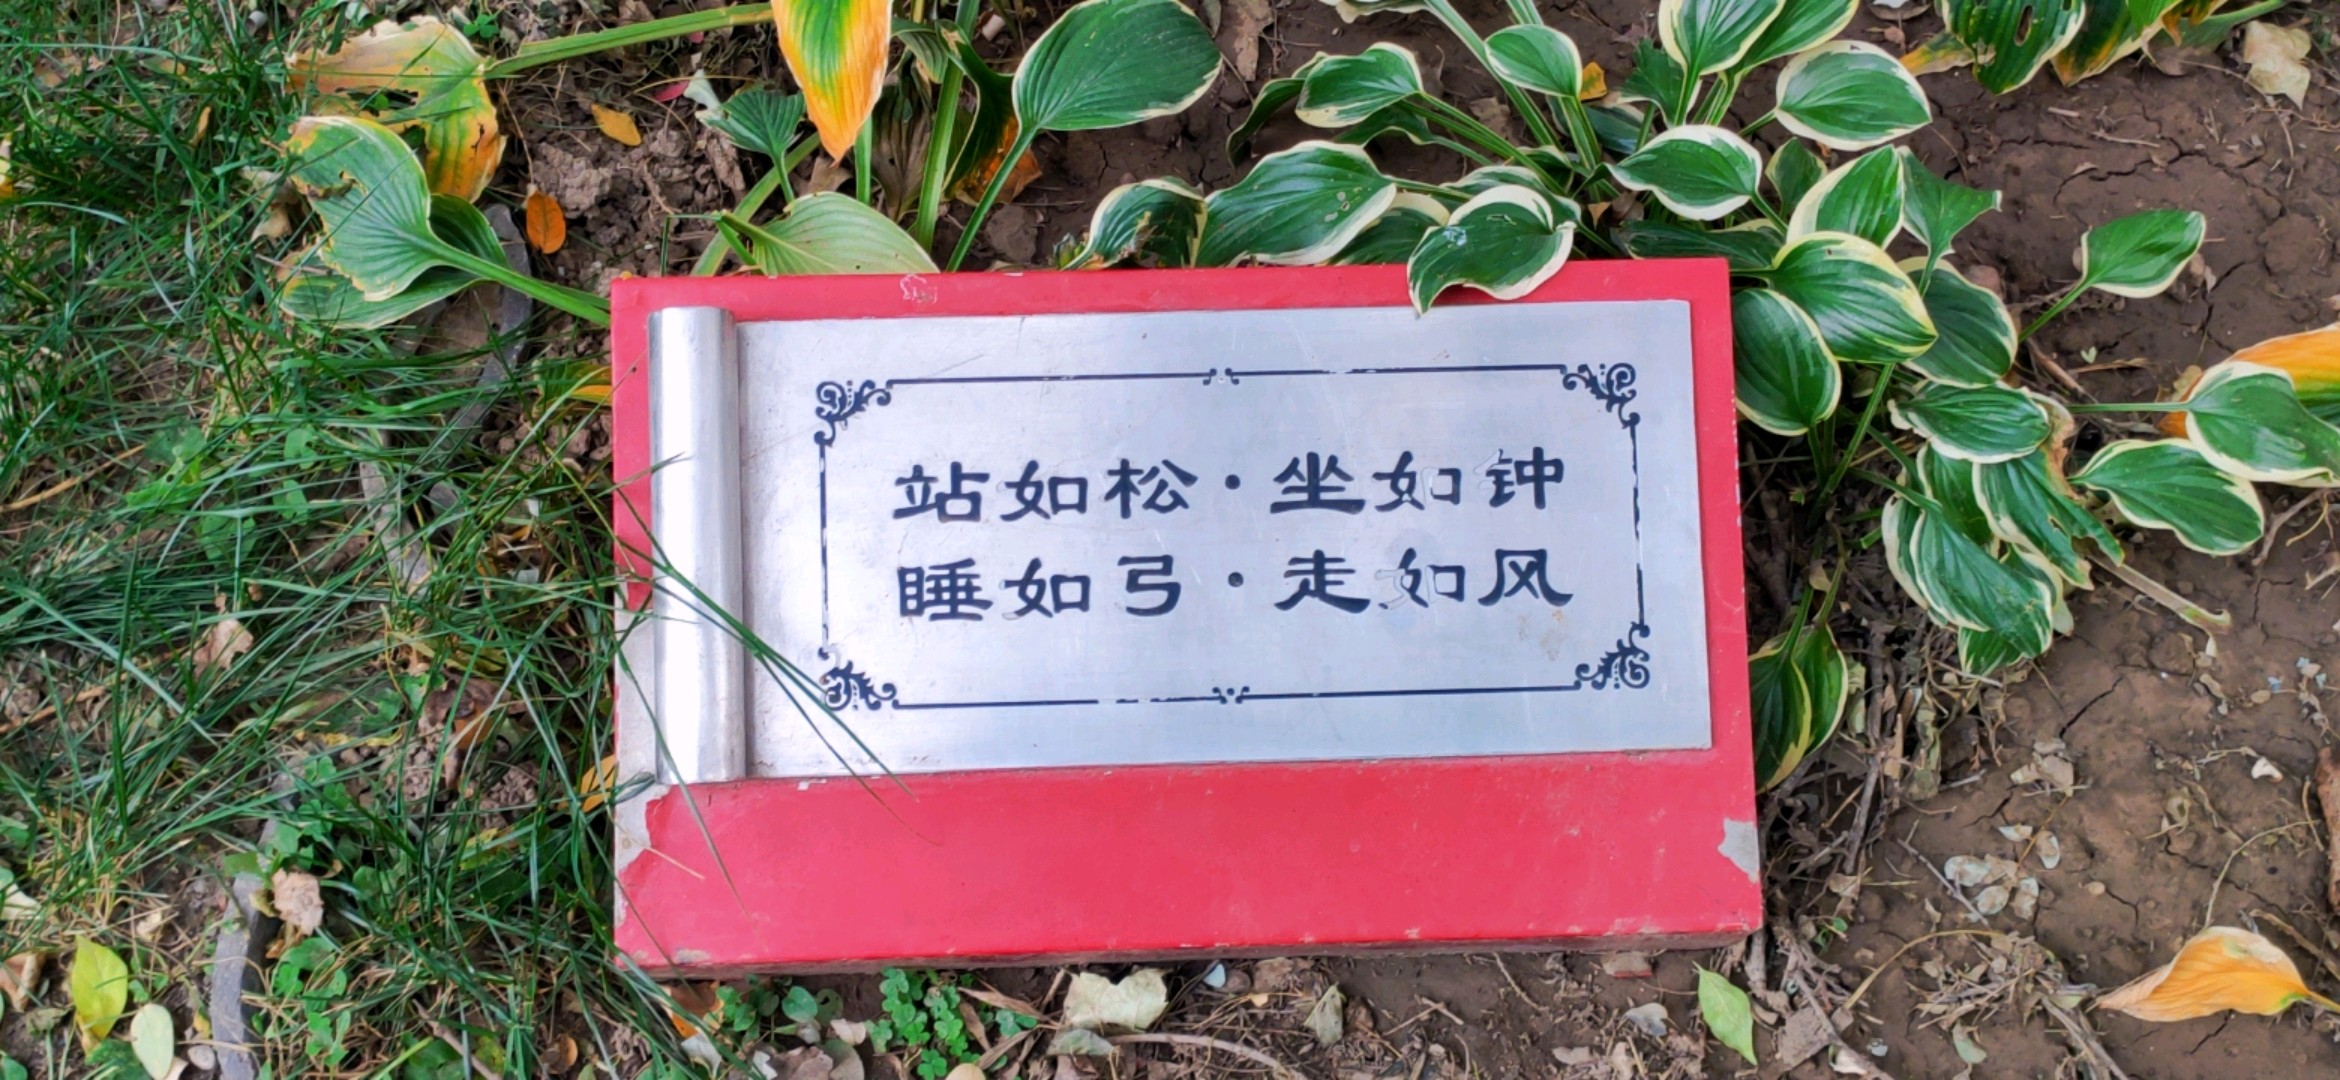 站如松·坐如钟
睡如弓·走如风